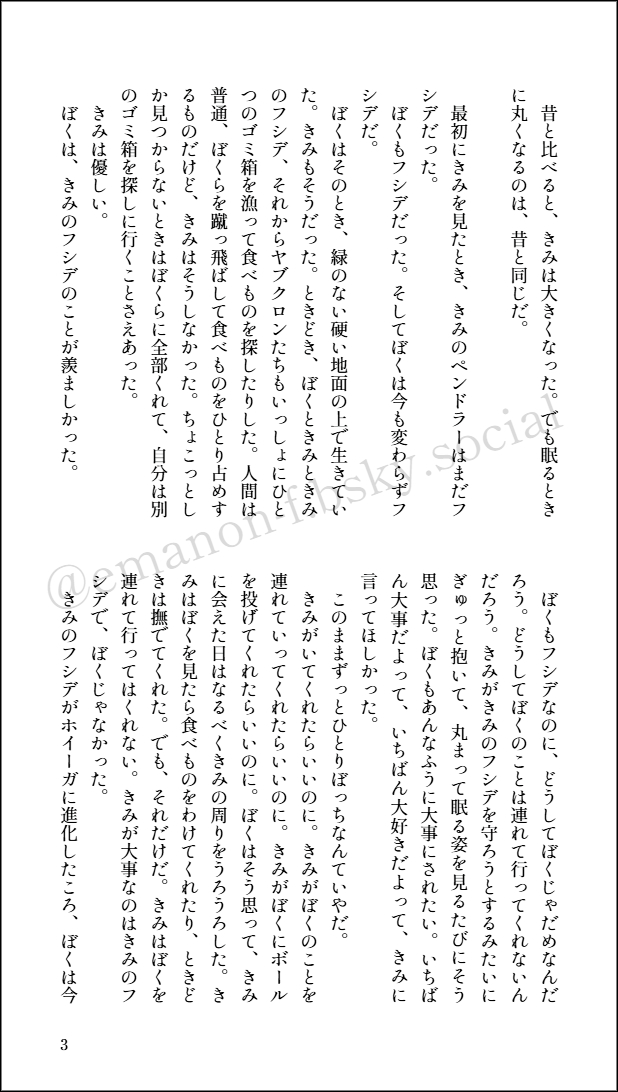 昔と比べると、きみは大きくなった。でも眠るとき
に丸くなるのは、昔と同じだ。
最初にきみを見たとき、きみのペンドラーはまだフ
シデだった。
ぼくもフシデだった。そしてぼくは今も変わらずフ
シデだ。
ぼくはそのとき、緑のない硬い地面の上で生きてい
た。きみもそうだった。ときどき、ぼくときみときみ
のフシデ、それからヤブクロンたちもいっしょにひと
つのゴミ箱を漁って食べものを探したりした。人間は
普通、ぼくらを蹴っ飛ばして食べものをひとり占めす
るものだけど、きみはそうしなかった。ちょこっとし
か見つからないときはぼくらに全部くれて、自分は別
のゴミ箱を探しに行くことさえあった。
きみは優しい。
ぼくは、きみのフシデのことが羨ましかった。
ぼくもフシデなのに、どうしてぼくじゃだめなんだ
ろう。どうしてぼくのことは連れて行ってくれないん
だろう。きみがきみのフシデを守ろうとするみたいに
ぎゅっと抱いて、丸まって眠る姿を見るたびにそう
思った。ぼくもあんなふうに大事にされたい。いちば
ん大事だよって、いちばん大好きだよって、きみに
言ってほしかった。
このままずっとひとりぼっちなんていやだ。
きみがいてくれたらいいのに。きみがぼくのことを
連れていってくれたらいいのに。きみがぼくにボール
を投げてくれたらいいのに。ぼくはそう思って、きみ
に会えた日はなるべくきみの周りをうろうろした。き
みはぼくを見たら食べものをわけてくれたり、ときど
きは撫でてくれた。でも、それだけだ。きみはぼくを
連れて行ってはくれない。きみが大事なのはきみのフ
シデで、ぼくじゃなかった。
きみのフシデがホイーガに進化したころ、ぼくは今
3
@emanon-f.bsky.social